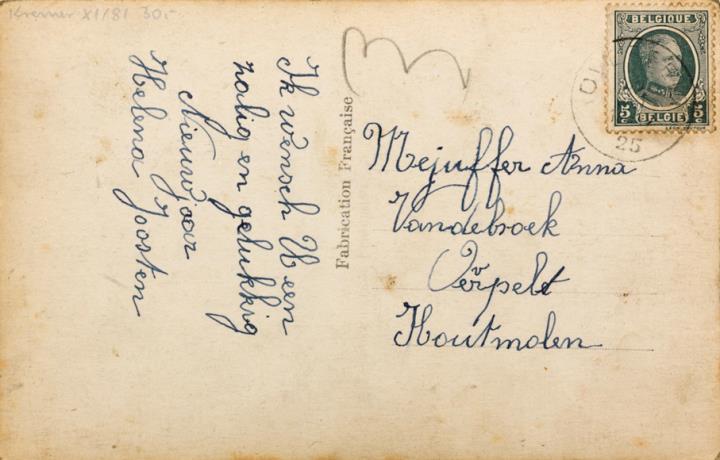 Kremer XI/81 30.-
Ik wensch U een
zalig en gelukkig
Nieuwjaar
Helena Joosten
Fabrication Française
3
BELGIQUE
5 c 5 c
BELGIE
25
Mejuffer Anna
Vandebroek
Overpelt
Houtmolen